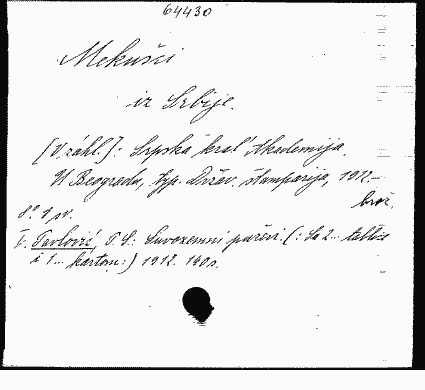 64430
Mekušci
iz Srbije.
[V záhl.]: Srpska kral. Akademija.
U Beogradu, typ. Držav. štamparija, 1912.–
brož.
8°. 1 sv.
I. Pavlović, P. S.: Suvozemni puževi. (: Sa 2... tablice
i 1... kartom:) 1912. 140 s.